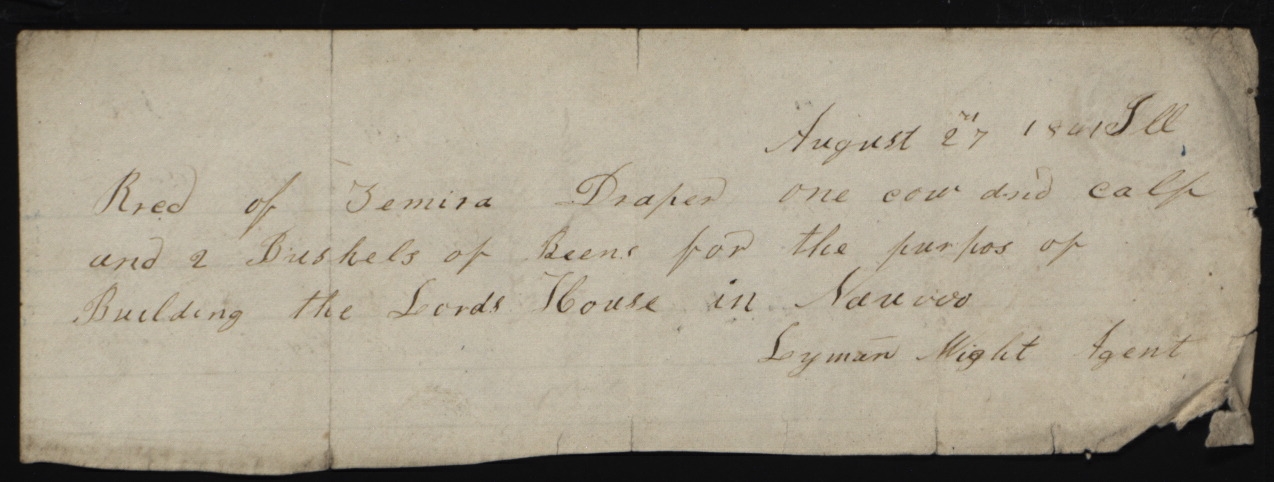 August 27th 1841 Ill
Rred of Zemira Draper one cow and calf
and 2 Bushels of Beens for the purpos of
Building the Lords House in Nauvoo
Lyman Wight Agent